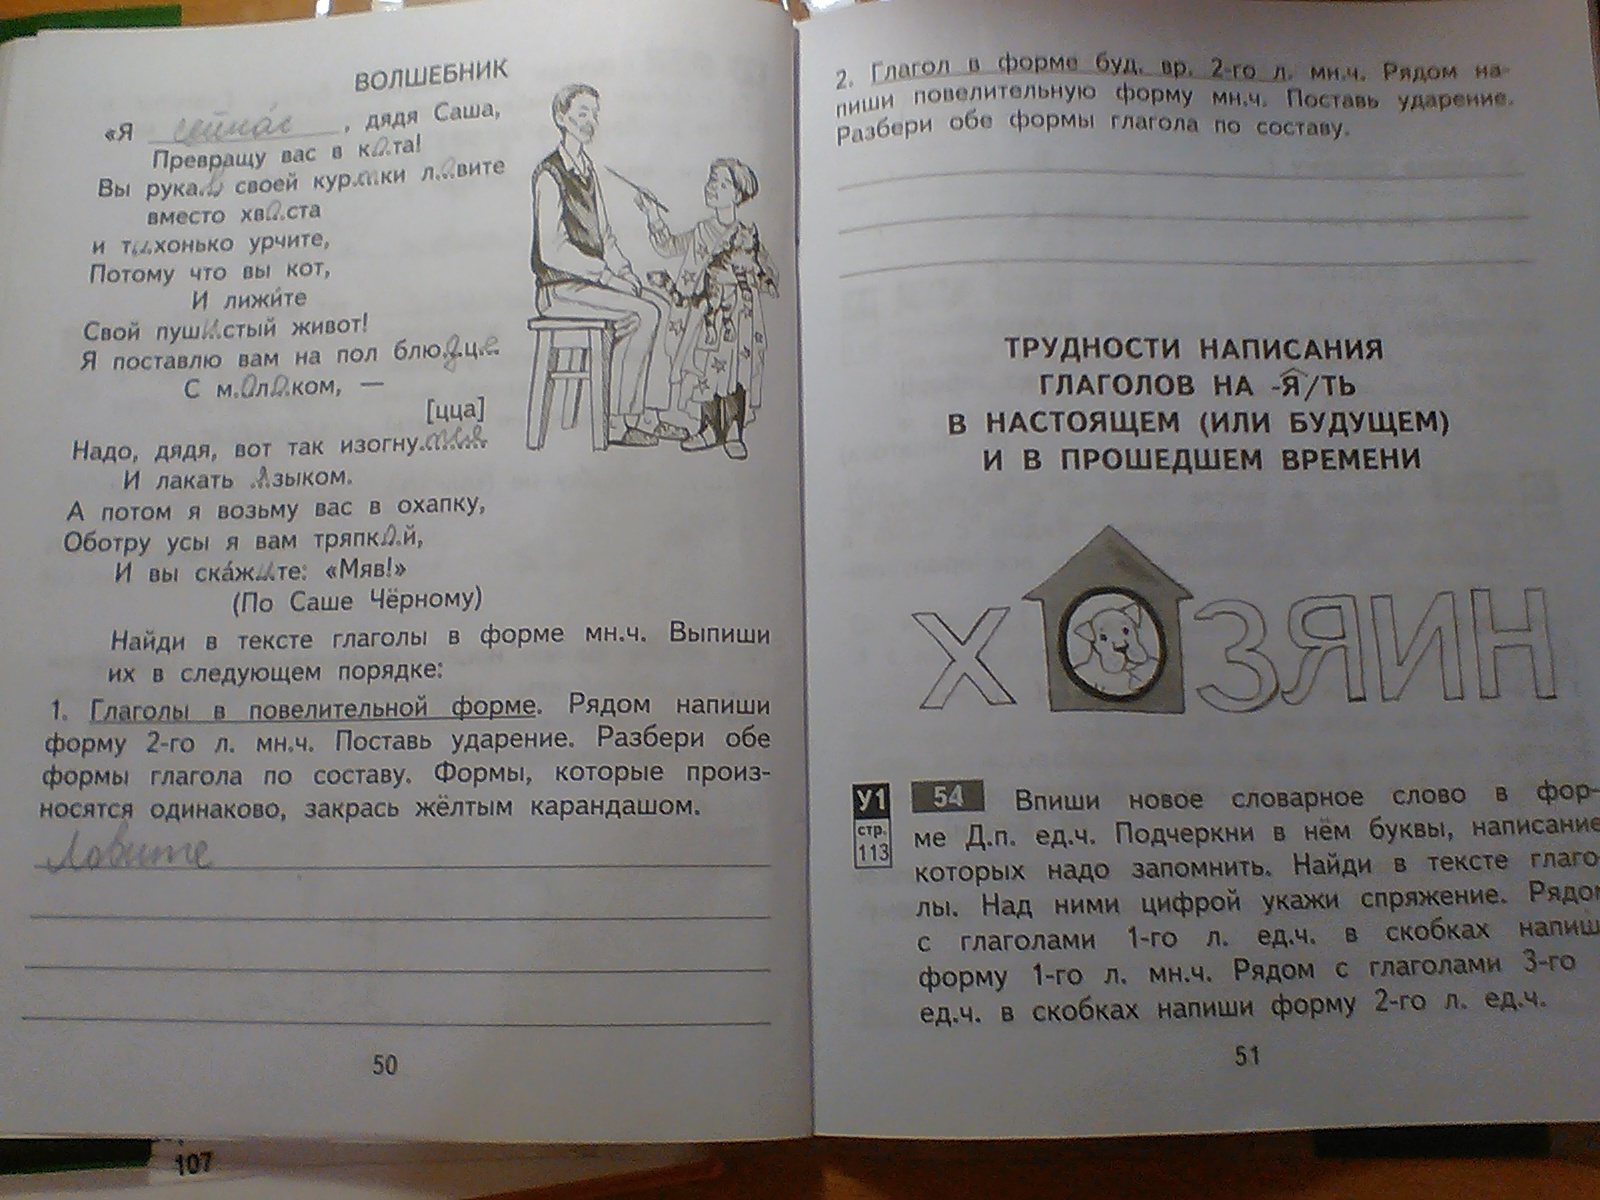 ВОЛШЕБНИК
«Я сейча́с, дядя Саша,
Превращу вас в кота!
Вы рукав своей куртки ловите
вместо хвоста
и тихонько урчите,
Потому что вы кот,
И лижи́те
Свой пушистый живот!
Я поставлю вам на пол блюдце
С молоком, —
[цца]
Надо, дядя, вот так изогнуться
И лакать языком.
А потом я возьму вас в охапку,
Оботру усы я вам тряпкой,
И вы ска́жите: «Мяв!»
(По Саше Чёрному)
Найди в тексте глаголы в форме мн.ч. Выпиши
их в следующем порядке:
1. Глаголы в повелительной форме. Рядом напиши
форму 2-го л. мн.ч. Поставь ударение. Разбери обе
формы глагола по составу. Формы, которые произ-
носятся одинаково, закрась жёлтым карандашом.
Ловите
50
107
2. Глагол в форме буд. вр. 2-го л. мн.ч. Рядом на-
пиши повелительную форму мн.ч. Поставь ударение.
Разбери обе формы глагола по составу.
ТРУДНОСТИ НАПИСАНИЯ
ГЛАГОЛОВ НА -Я/ТЬ
В НАСТОЯЩЕМ (ИЛИ БУДУЩЕМ)
И В ПРОШЕДШЕМ ВРЕМЕНИ
ХОЗЯИН
У1
стр.
113
54 Впиши новое словарное слово в фор-
ме Д.п. ед.ч. Подчеркни в нём буквы, написание
которых надо запомнить. Найди в тексте глаго-
лы. Над ними цифрой укажи спряжение. Рядом
с глаголами 1-го л. ед.ч. в скобках напиш
форму 1-го л. мн.ч. Рядом с глаголами 3-го
ед.ч. в скобках напиши форму 2-го л. ед.ч.
51